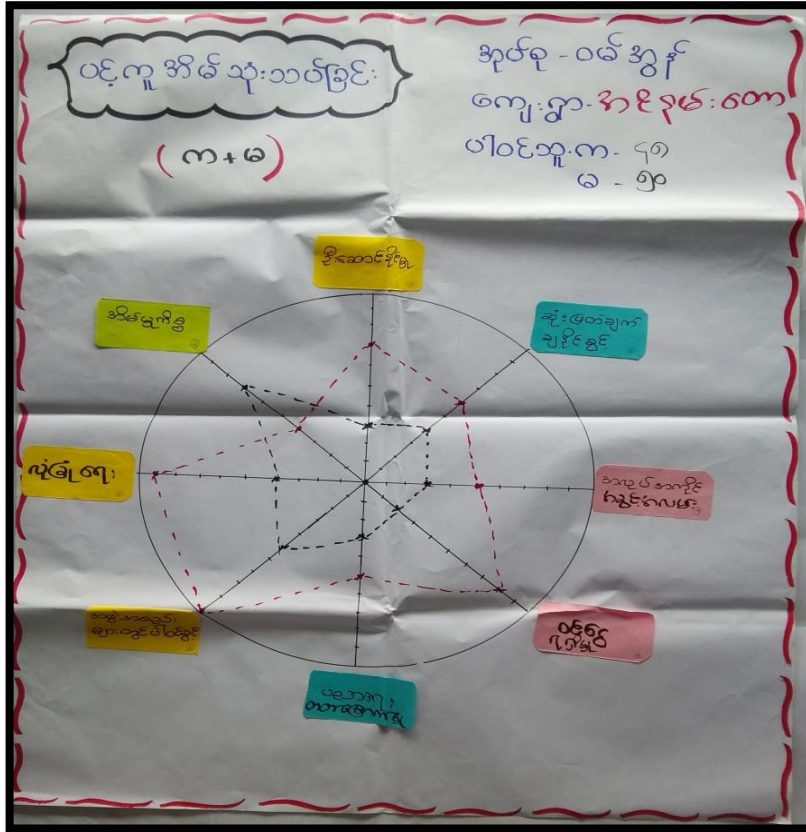 ပင့်ကူအိမ်သုံးသပ်ခြင်း
(က+မ)
အုပ်စု - ဝမ်အွန်
ကျေးရွာ-
ပါဝင်သူ.က- ၄၈
မ - ၅၀
ဦးဆောင်နိုင်မှု
ဆုံးဖြတ်ချက်
ချနိုင်ခွင့်
အလုပ်အကိုင်
အခွင့်အလမ်း
ဝင်ငွေ
ရရှိမှု
ပညာရေး
တတ်မြောက်မှု
များတွင်ပါဝင်ခွင့်
လုံခြုံရေး
အိမ်မှုကိစ္စ